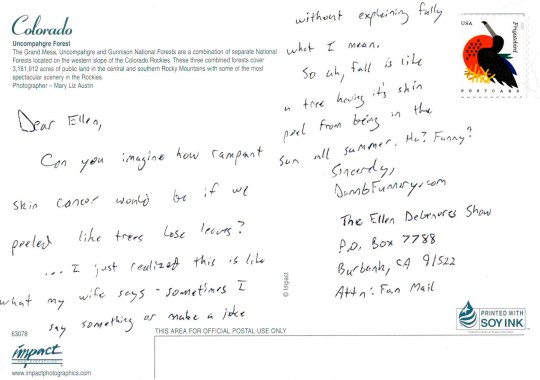 Colorado
Uncompahgre Forest
The Grand Mesa, Uncompahgre and Gunnison National Forests are a combination of separate National
Forests located on the western slope of the Colorado Rockies. These three combined forests cover
3,161,912 acres of public land in the central and southern Rocky Mountains with some of the most
spectacular scenery in the Rockies.
Photographer – Mary Liz Austin
Dear Ellen,
Can you imagine how rampant
skin cancer would be if we
peeled like trees lose leaves?
... I just realized this is like
what my wife says - sometimes I
say something or make a joke
without explaining fully
what I mean.
So uh, fall is like
a tree having it's skin
peel from being in the
sun all summer. Ha? Funny?
Sincerely,
DumbFunnery.com
The Ellen Degenores Show
P.O. Box 7788
Burbank, CA 91522
Attn: Fan Mail
USA
Frigatebird
POSTCARD
© Impact
63078
THIS AREA FOR OFFICIAL POSTAL USE ONLY
impact
www.impactphotographics.com
PRINTED WITH
SOY INK